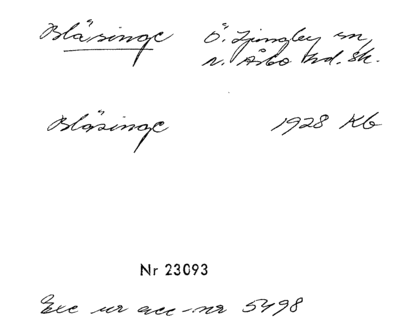 Bläsinge Ö. Ljungby sn,
n. Åsbo hd. Sk.
Bläsinge 1928 Kb
Nr 23093
Exc ur acc-nr 5498